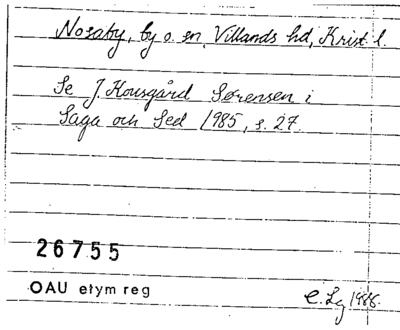 Nosaby, by o. sn, Villands hd, Krist. l.
Se J. Kousgård Sørensen i
Saga och Sed 1985, s. 27.
26755
OAU etym reg
1986